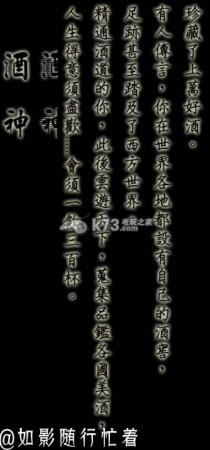 珍藏了上萬好酒。
有人傳言，你在世界各地都設有自己的酒窖，
足跡甚至踏及了西方世界
精通酒道的你，此後雲遊天下，蒐集品鑑各國美酒，
人生得意須盡歡……會須一飲三百杯。
酒神
酒神
k73 电玩之家
.com
@如影随行忙着